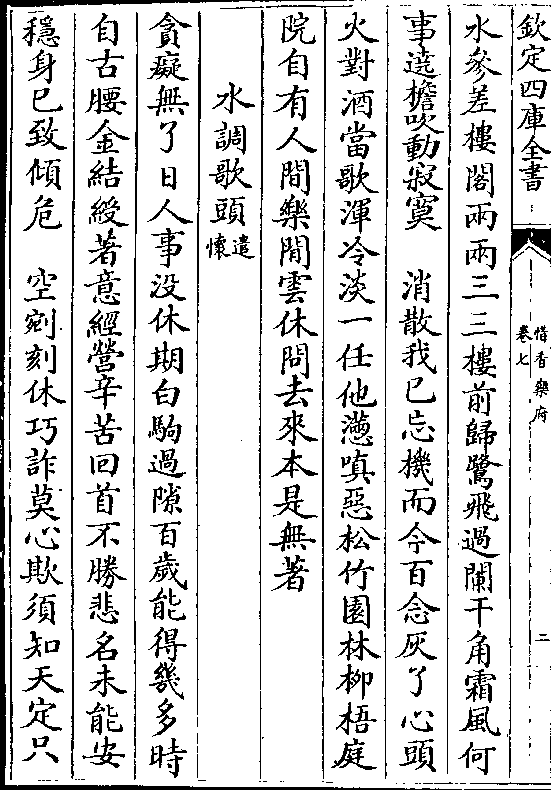 欽定四庫全書
惜香樂府
卷七
二
水參差樓閣兩兩三三樓前歸鷺飛過闌干角霜風何
事遶檐吹動寂寞　消散我已忘機而今百念灰了心頭
火對酒當歌渾冷淡一任他懣嗔惡松竹園林柳梧庭
院自有人間樂閒雲休問去來本是無著
水調歌頭遣懷
貪癡無了日人事没休期白駒過隙百歲能得幾多時
自古腰金結綬著意經營辛苦回首不勝悲名未能安
穩身已致傾危　空剜刻休巧詐莫心欺須知天定只